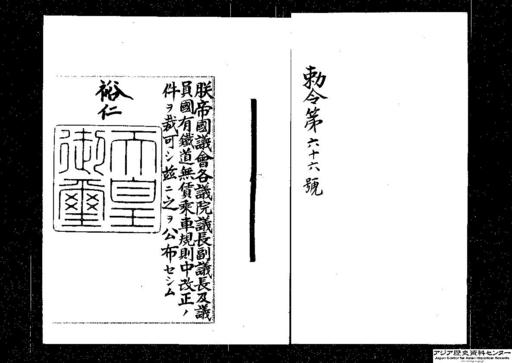 勅令第六十六號
朕帝國議會各議院議長副議長及議
員國有鐵道無賃乘車規則中改正ノ
件ヲ裁可シ茲ニ之ヲ公布セシム
裕仁
天皇
御璽
アジア歴史資料センター
Japan Center for Asian Historical Records